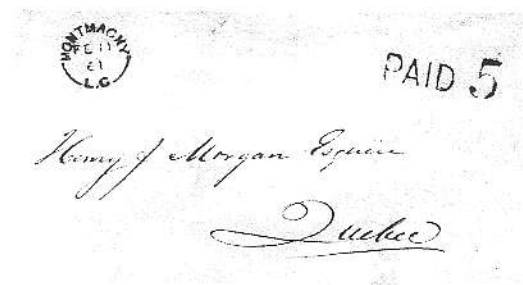 MONTMAGNY
FE 11
61
L.C
PAID 5
Henry J Morgan Esquire
Quebec